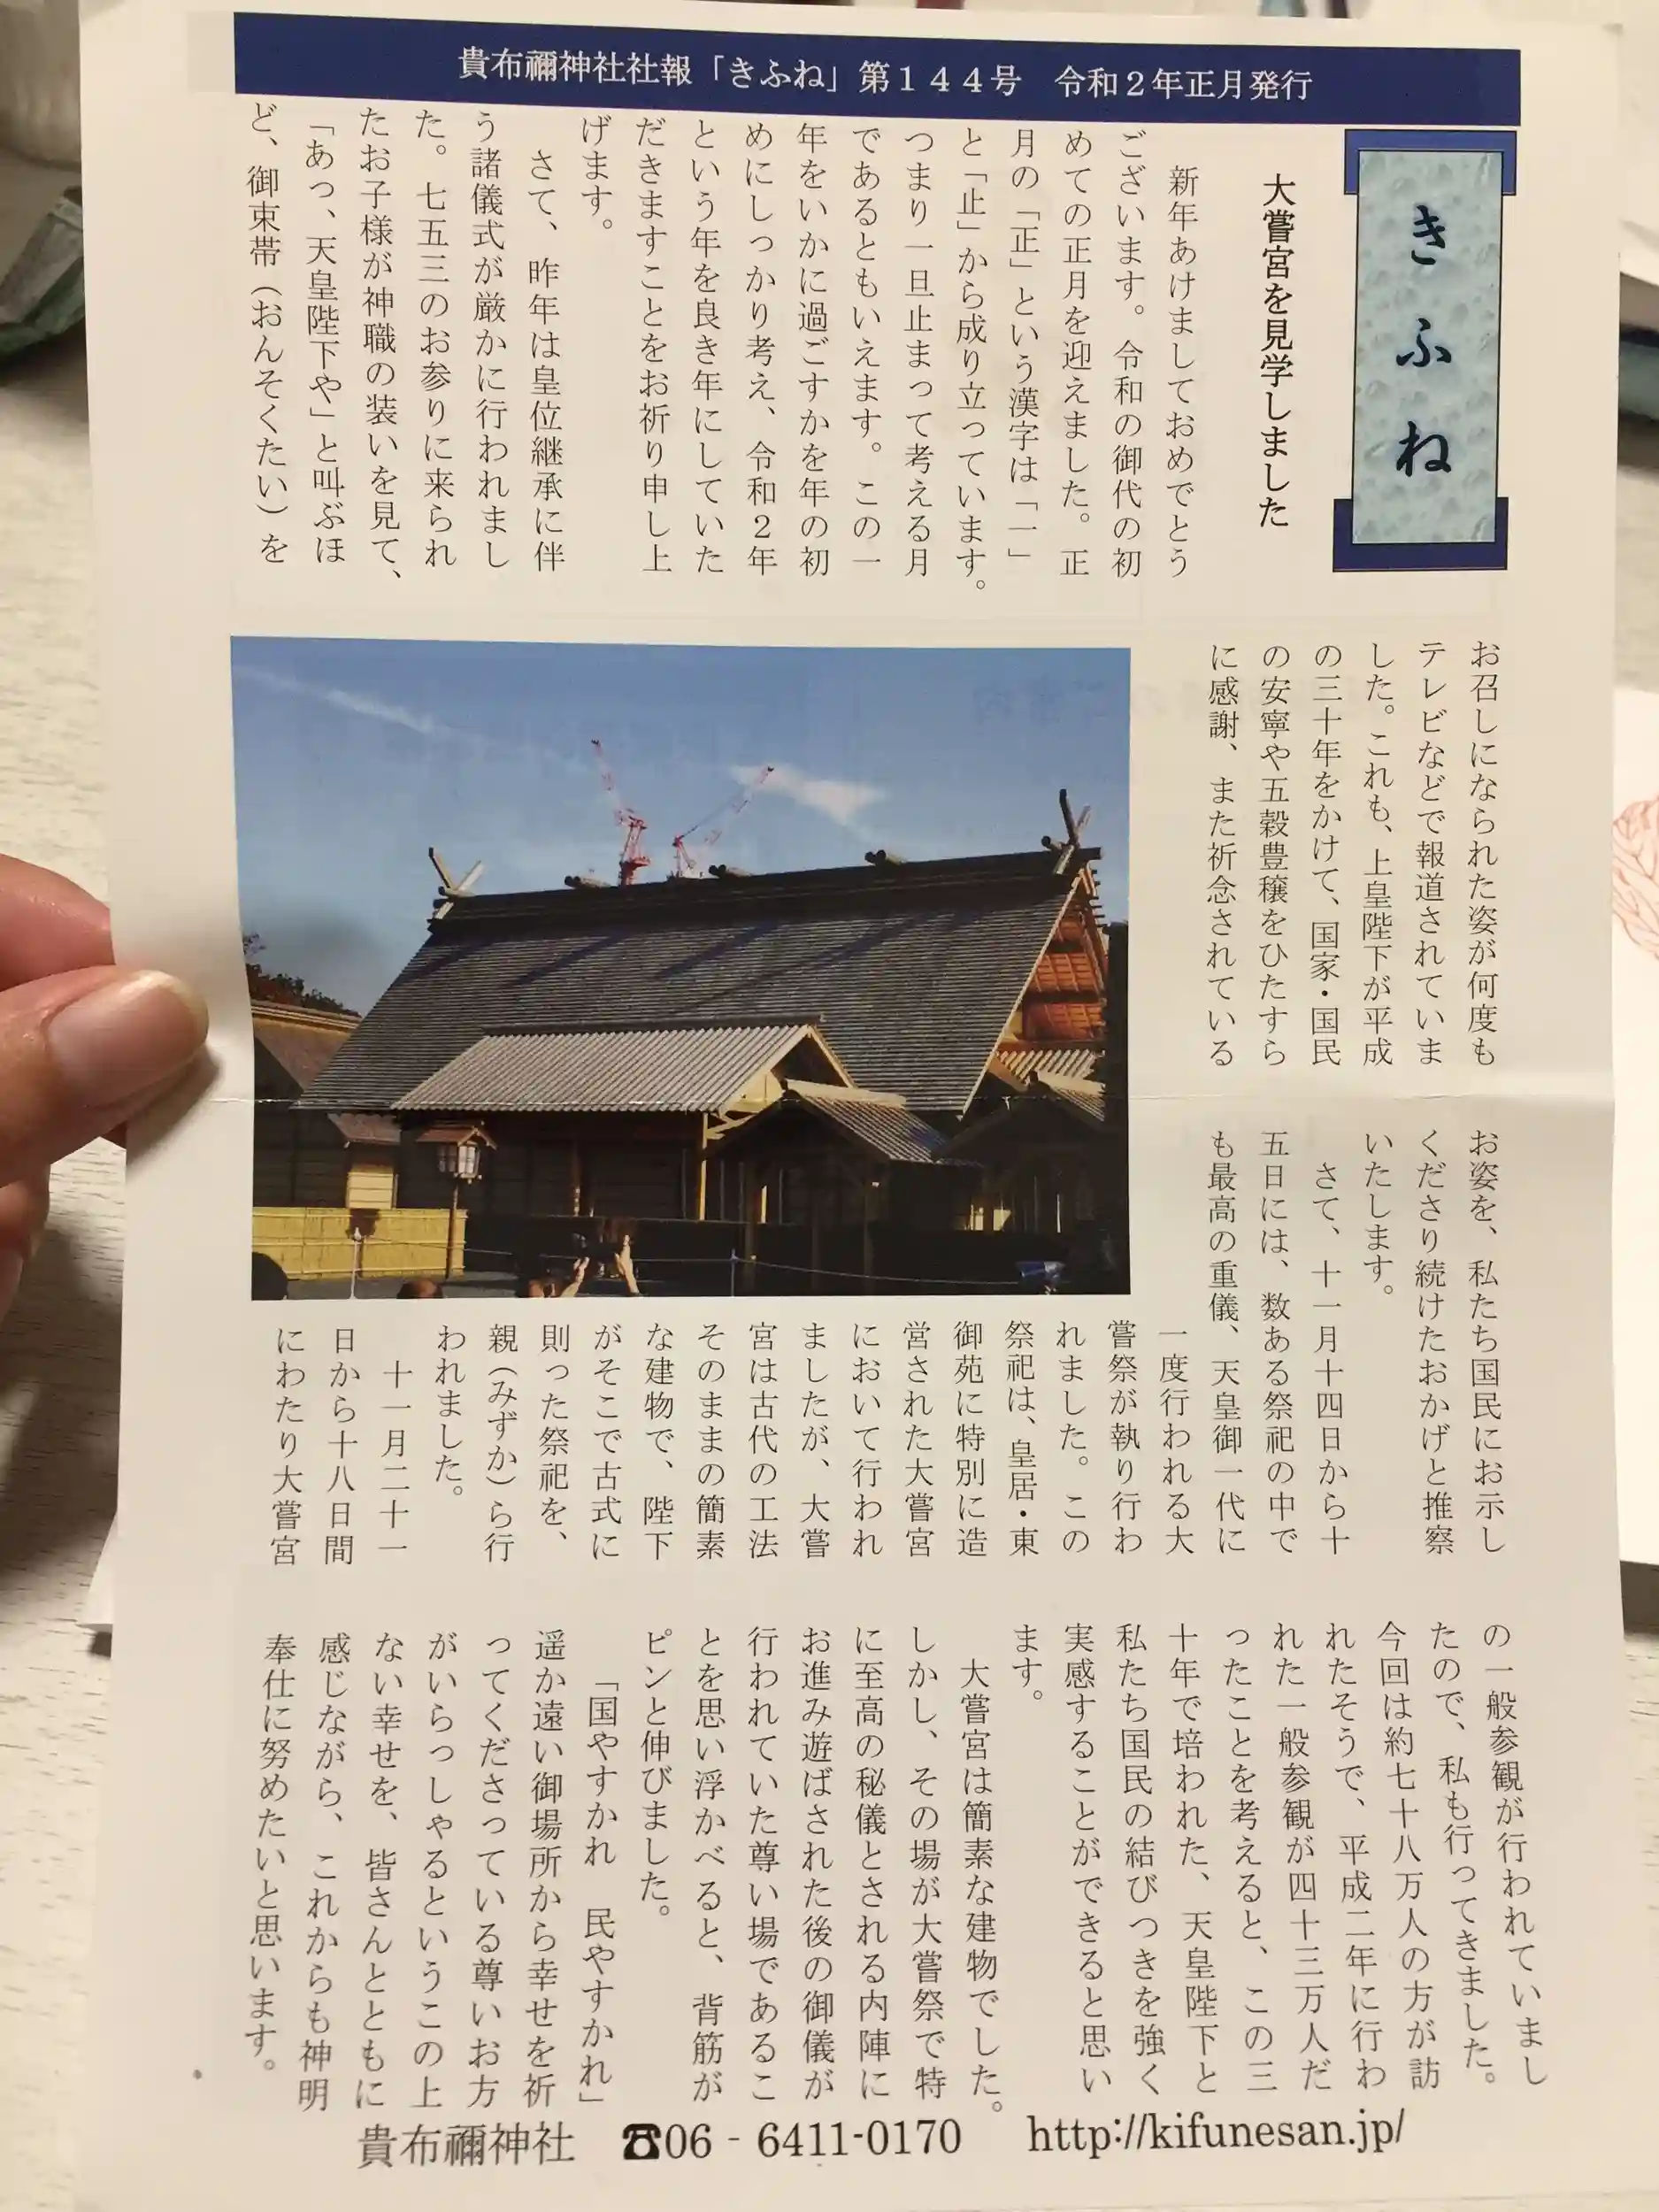 貴布禰神社社報「きふね」第１４４号　令和２年正月発行
きふね
大嘗宮を見学しました
新年あけましておめでとう
ございます。令和の御代の初
めての正月を迎えました。正
月の「正」という漢字は「一」
と「止」から成り立っています。
つまり一旦止まって考える月
であるともいえます。この一
年をいかに過ごすかを年の初
めにしっかり考え、令和２年
という年を良き年にしていた
だきますことをお祈り申し上
げます。
さて、昨年は皇位継承に伴
う諸儀式が厳かに行われまし
た。七五三のお参りに来られ
たお子様が神職の装いを見て、
「あっ、天皇陛下や」と叫ぶほ
ど、御束帯（おんそくたい）を
お召しになられた姿が何度も
テレビなどで報道されていま
した。これも、上皇陛下が平成
の三十年をかけて、国家・国民
の安寧や五穀豊穣をひたすら
に感謝、また祈念されている
お姿を、私たち国民にお示し
くださり続けたおかげと推察
いたします。
さて、十一月十四日から十
五日には、数ある祭祀の中で
も最高の重儀、天皇御一代に
一度行われる大
嘗祭が執り行わ
れました。この
祭祀は、皇居・東
御苑に特別に造
営された大嘗宮
において行われ
ましたが、大嘗
宮は古代の工法
そのままの簡素
な建物で、陛下
がそこで古式に
則った祭祀を、
親（みずか）ら行
われました。
十一月二十一
日から十八日間
にわたり大嘗宮
の一般参観が行われていまし
たので、私も行ってきました。
今回は約七十八万人の方が訪
れたそうで、平成二年に行わ
れた一般参観が四十三万人だ
ったことを考えると、この三
十年で培われた、天皇陛下と
私たち国民の結びつきを強く
実感することができると思い
ます。
大嘗宮は簡素な建物でした。
しかし、その場が大嘗祭で特
に至高の秘儀とされる内陣に
お進み遊ばされた後の御儀が
行われていた尊い場であるこ
とを思い浮かべると、背筋が
ピンと伸びました。
「国やすかれ　民やすかれ」
遥か遠い御場所から幸せを祈
ってくださっている尊いお方
がいらっしゃるというこの上
ない幸せを、皆さんとともに
感じながら、これからも神明
奉仕に努めたいと思います。
貴布禰神社　☎06‐6411-0170　http://kifunesan.jp/